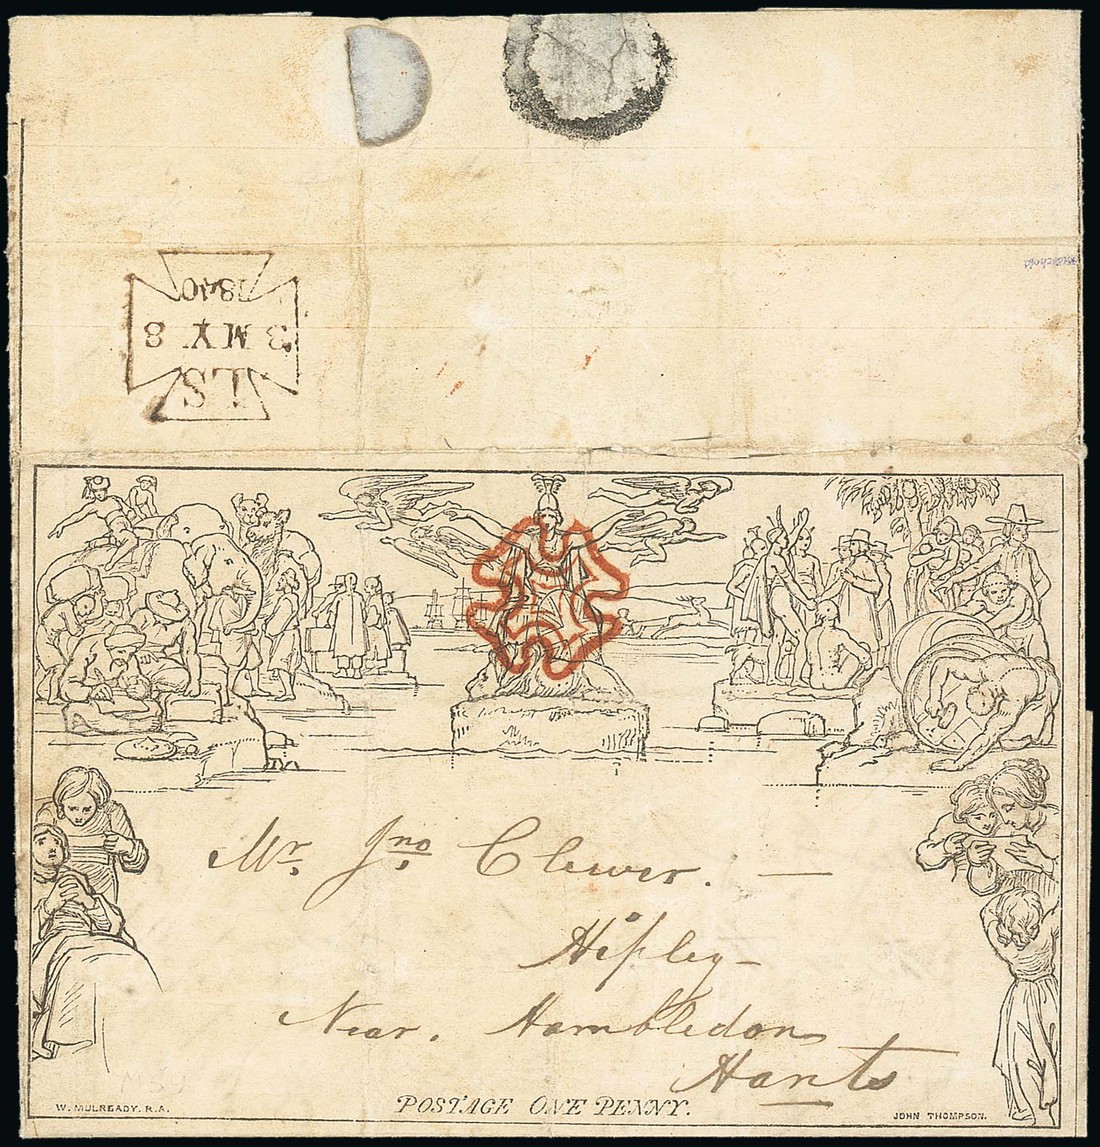 LS
3 MY 8
1840
Mr. Jno. Clewer. —
Hipley –
Near. Hambledon
Hants
W. MULREADY. R.A.
POSTAGE ONE PENNY.
JOHN THOMPSON.